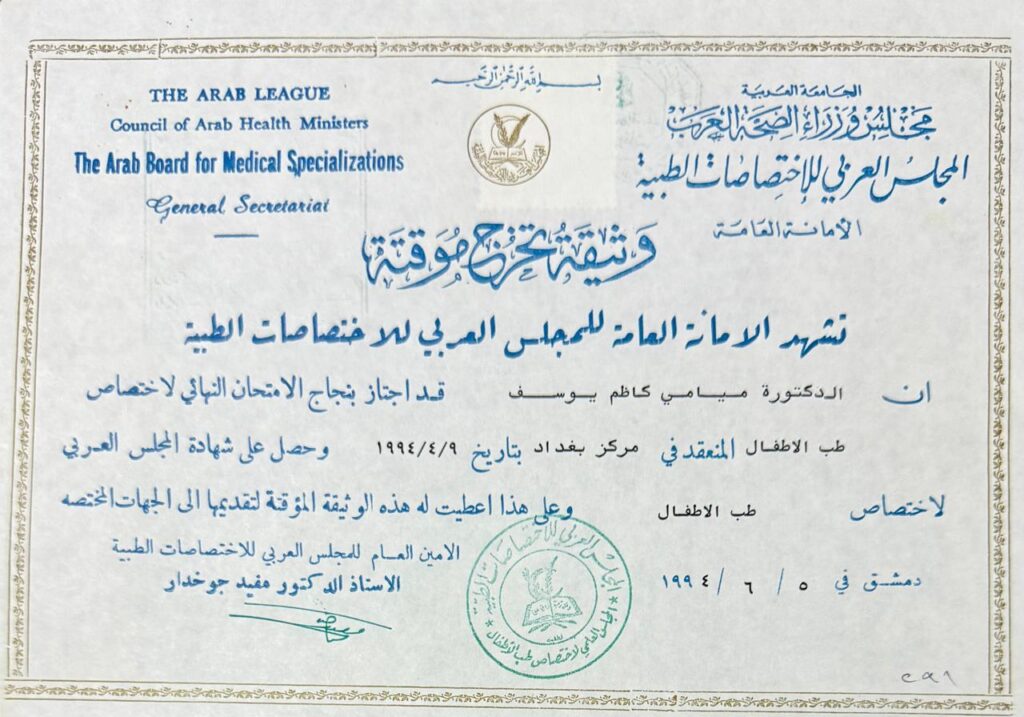 بسم الله الرحمن الرحيم
THE ARAB LEAGUE
Council of Arab Health Ministers
The Arab Board for Medical Specializations
General Secretariat
الجامعة العربية
مجلس وزراء الصحة العرب
المجلس العربي للإختصاصات الطبية
الأمانة العامة
وثيقة تخرج مؤقتة
تشهد الامانة العامة للمجلس العربي للاختصاصات الطبية
ان الدكتورة ميامي كاظم يوسف قد اجتاز بنجاح الامتحان النهائي لاختصاص
طب الاطفال المنعقد في مركز بغداد بتاريخ ١٩٩٤/٤/٩ وحصل على شهادة المجلس العربي
لاختصاص طب الاطفال وعلى هذا اعطيت له هذه الوثيقة المؤقتة لتقديمها الى الجهات المختصه
دمشق في ٥ / ٦ / ١٩٩٤
الامين العام للمجلس العربي للاختصاصات الطبية
الاستاذ الدكتور مفيد جوخدار
المجلس العربي للاختصاصات الطبية
المجلس العلمي لاختصاص طب الأطفال